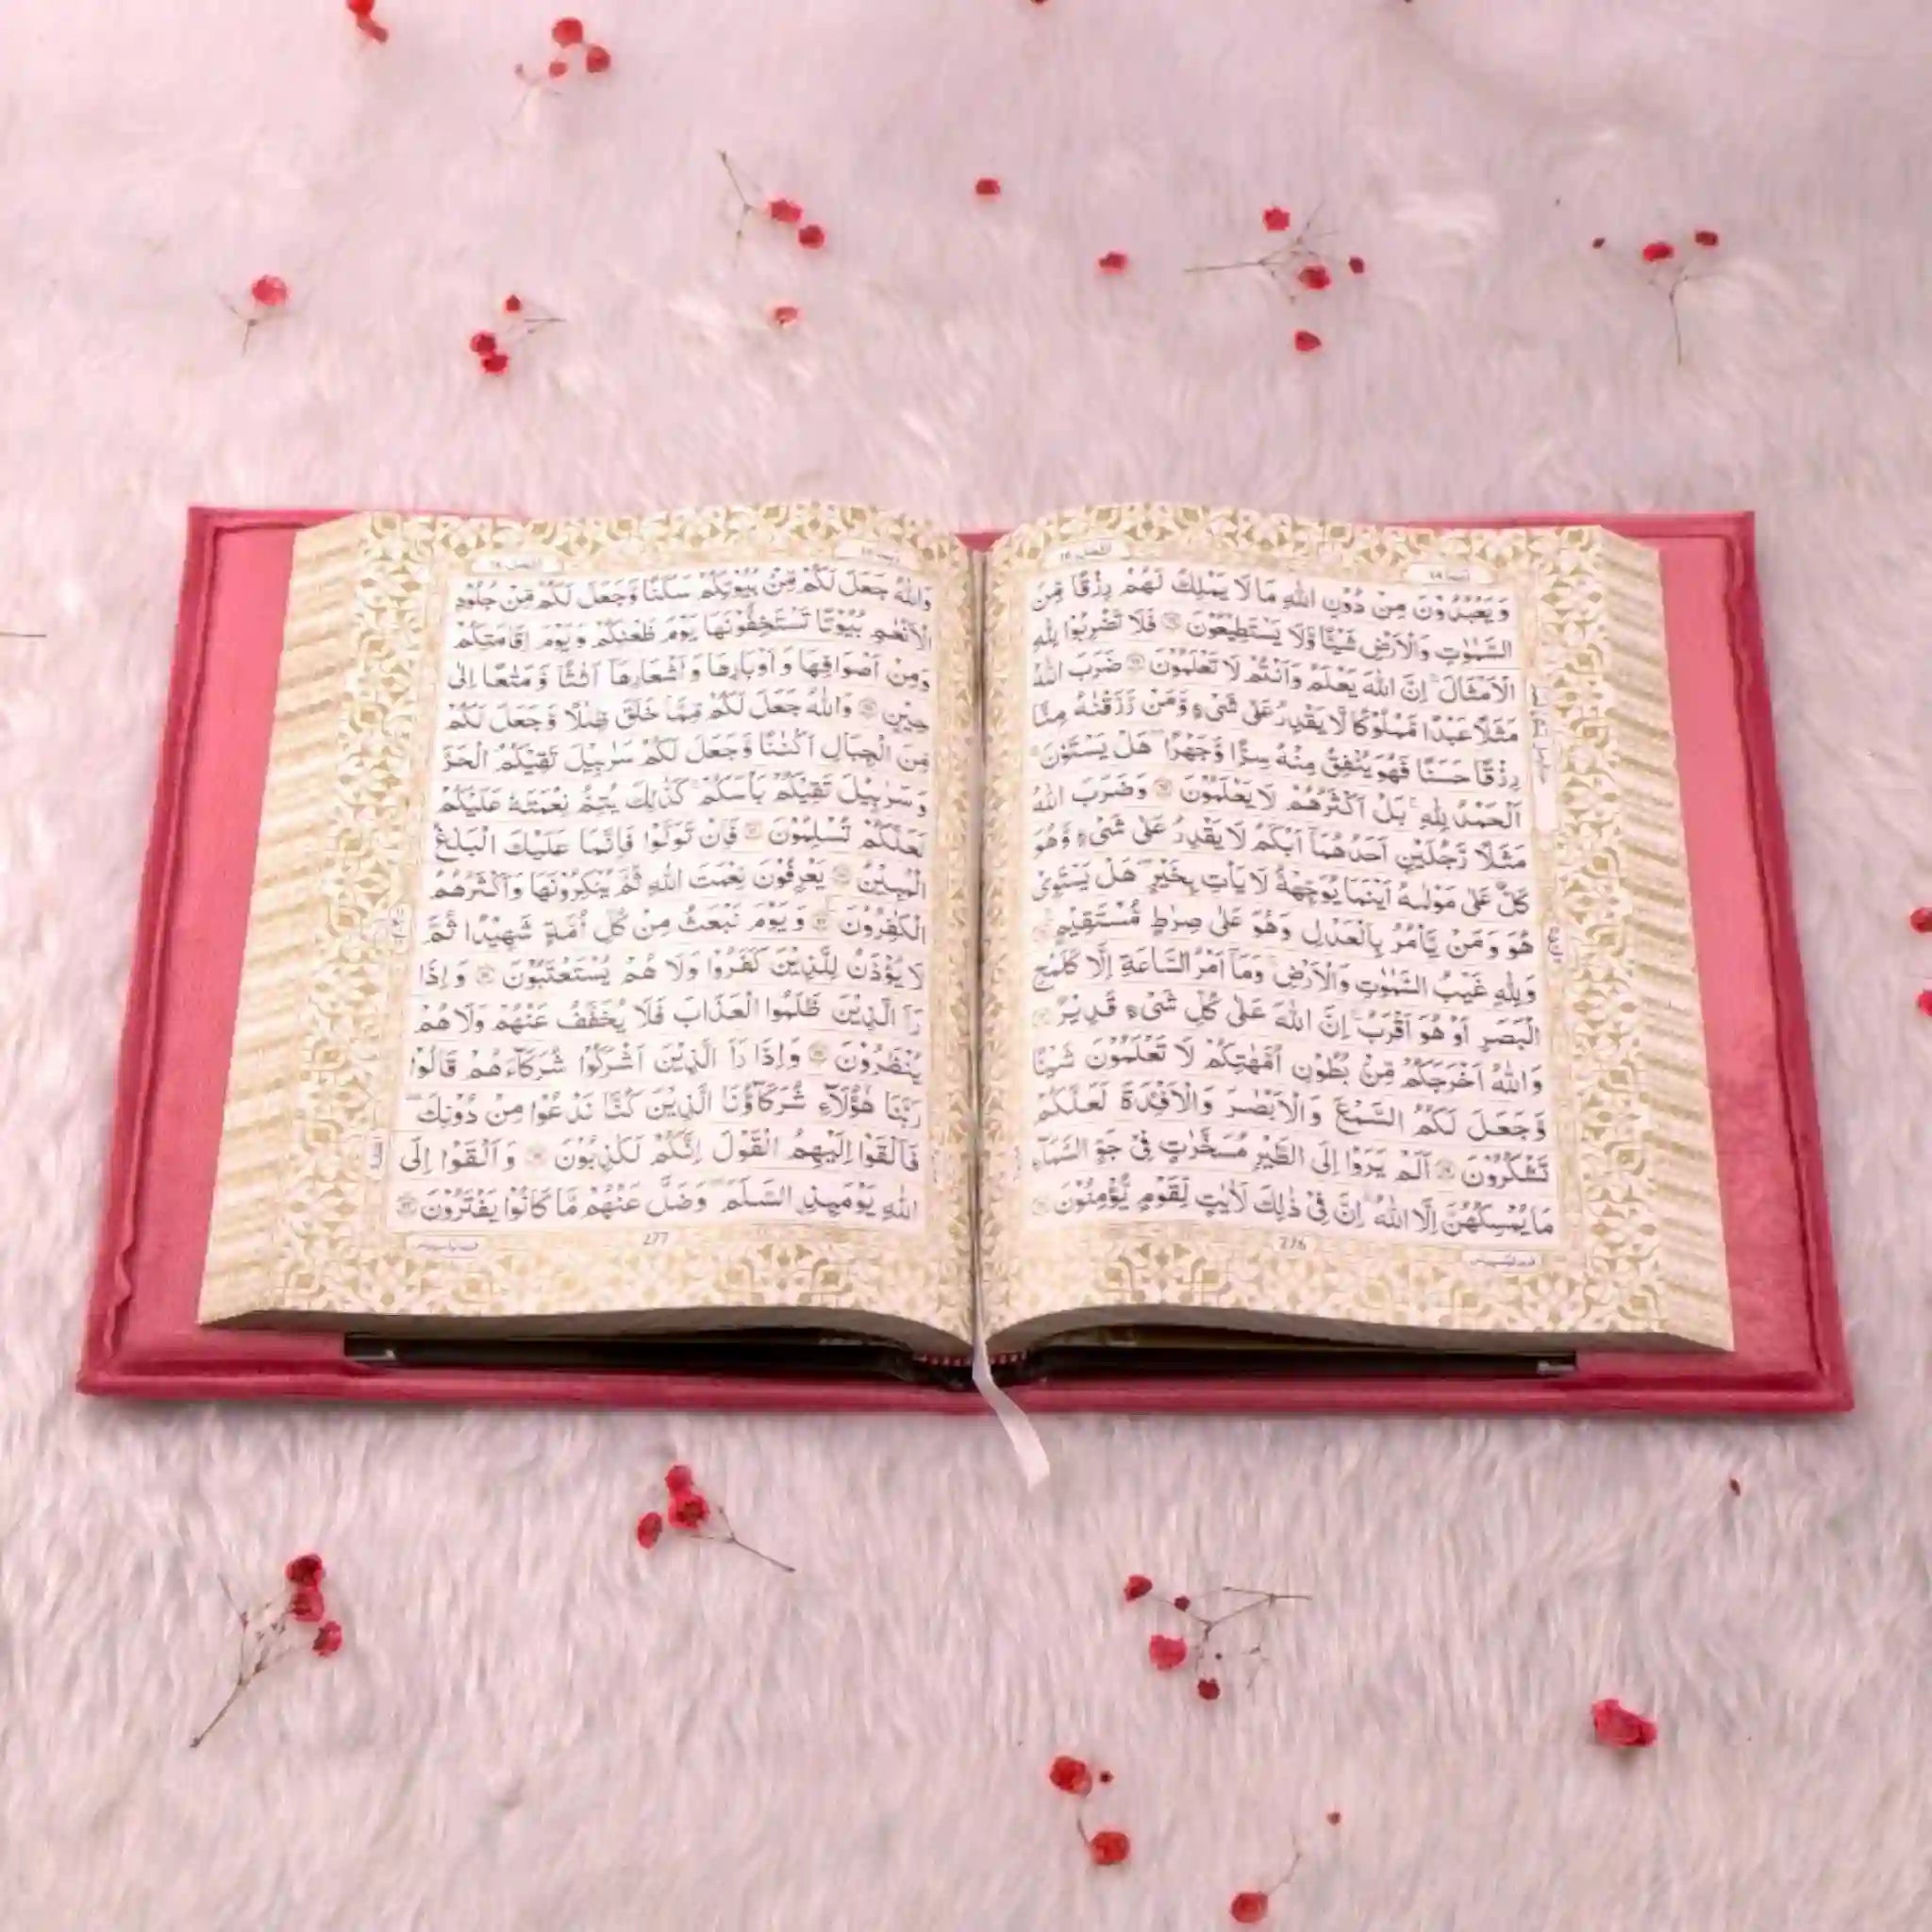 النحل ١٦
وَيَعْبُدُوْنَ مِنْ دُوْنِ اللّٰهِ مَا لَا يَمْلِكُ لَهُمْ رِزْقًا مِّنَ
السَّمٰوٰتِ وَالْاَرْضِ شَيْـًٔا وَّلَا يَسْتَطِيْعُوْنَ فَلَا تَضْرِبُوْا لِلّٰهِ
الْاَمْثَالَ اِنَّ اللّٰهَ يَعْلَمُ وَاَنْتُمْ لَا تَعْلَمُوْنَ ضَرَبَ اللّٰهُ
مَثَلًا عَبْدًا مَّمْلُوْكًا لَّا يَقْدِرُ عَلٰى شَىْءٍ وَّمَنْ رَّزَقْنٰهُ مِنَّا
رِزْقًا حَسَنًا فَهُوَ يُنْفِقُ مِنْهُ سِرًّا وَّجَهْرًا هَلْ يَسْتَوٗنَ
اَلْحَمْدُ لِلّٰهِ بَلْ اَكْثَرُهُمْ لَا يَعْلَمُوْنَ وَضَرَبَ اللّٰهُ
مَثَلًا رَّجُلَيْنِ اَحَدُهُمَآ اَبْكَمُ لَا يَقْدِرُ عَلٰى شَىْءٍ وَّهُوَ
كَلٌّ عَلٰى مَوْلٰىهُ اَيْنَمَا يُوَجِّهْهُّ لَا يَاْتِ بِخَيْرٍ هَلْ يَسْتَوِىْ
هُوَ وَمَنْ يَّاْمُرُ بِالْعَدْلِ وَهُوَ عَلٰى صِرَاطٍ مُّسْتَقِيْمٍ
وَلِلّٰهِ غَيْبُ السَّمٰوٰتِ وَالْاَرْضِ وَمَآ اَمْرُ السَّاعَةِ اِلَّا كَلَمْحِ
الْبَصَرِ اَوْ هُوَ اَقْرَبُ اِنَّ اللّٰهَ عَلٰى كُلِّ شَىْءٍ قَدِيْرٌ
وَاللّٰهُ اَخْرَجَكُمْ مِّنْ بُطُوْنِ اُمَّهٰتِكُمْ لَا تَعْلَمُوْنَ شَيْـًٔا
وَّجَعَلَ لَكُمُ السَّمْعَ وَالْاَبْصَارَ وَالْاَفْـِٕدَةَ لَعَلَّكُمْ
تَشْكُرُوْنَ اَلَمْ يَرَوْا اِلَى الطَّيْرِ مُسَخَّرٰتٍ فِىْ جَوِّ السَّمَآءِ
مَا يُمْسِكُهُنَّ اِلَّا اللّٰهُ اِنَّ فِىْ ذٰلِكَ لَاٰيٰتٍ لِّقَوْمٍ يُّؤْمِنُوْنَ
276
النحل ١٦
وَاللّٰهُ جَعَلَ لَكُمْ مِّنْ بُيُوْتِكُمْ سَكَنًا وَّجَعَلَ لَكُمْ مِّنْ جُلُوْدِ
الْاَنْعَامِ بُيُوْتًا تَسْتَخِفُّوْنَهَا يَوْمَ ظَعْنِكُمْ وَيَوْمَ اِقَامَتِكُمْ
وَمِنْ اَصْوَافِهَا وَاَوْبَارِهَا وَاَشْعَارِهَآ اَثَاثًا وَّمَتَاعًا اِلٰى
حِيْنٍ وَاللّٰهُ جَعَلَ لَكُمْ مِّمَّا خَلَقَ ظِلٰلًا وَّجَعَلَ لَكُمْ
مِّنَ الْجِبَالِ اَكْنَانًا وَّجَعَلَ لَكُمْ سَرَابِيْلَ تَقِيْكُمُ الْحَرَّ
وَسَرَابِيْلَ تَقِيْكُمْ بَاْسَكُمْ كَذٰلِكَ يُتِمُّ نِعْمَتَهٗ عَلَيْكُمْ
لَعَلَّكُمْ تُسْلِمُوْنَ فَاِنْ تَوَلَّوْا فَاِنَّمَا عَلَيْكَ الْبَلٰغُ
الْمُبِيْنُ يَعْرِفُوْنَ نِعْمَتَ اللّٰهِ ثُمَّ يُنْكِرُوْنَهَا وَاَكْثَرُهُمُ
الْكٰفِرُوْنَ وَيَوْمَ نَبْعَثُ مِنْ كُلِّ اُمَّةٍ شَهِيْدًا ثُمَّ
لَا يُؤْذَنُ لِلَّذِيْنَ كَفَرُوْا وَلَا هُمْ يُسْتَعْتَبُوْنَ وَاِذَا
رَاَ الَّذِيْنَ ظَلَمُوا الْعَذَابَ فَلَا يُخَفَّفُ عَنْهُمْ وَلَا هُمْ
يُنْظَرُوْنَ وَاِذَا رَاَ الَّذِيْنَ اَشْرَكُوْا شُرَكَآءَهُمْ قَالُوْا
رَبَّنَا هٰٓؤُلَآءِ شُرَكَآؤُنَا الَّذِيْنَ كُنَّا نَدْعُوْا مِنْ دُوْنِكَ
فَاَلْقَوْا اِلَيْهِمُ الْقَوْلَ اِنَّكُمْ لَكٰذِبُوْنَ وَاَلْقَوْا اِلَى
اللّٰهِ يَوْمَىِٕذِ السَّلَمَ وَضَلَّ عَنْهُمْ مَّا كَانُوْا يَفْتَرُوْنَ
277